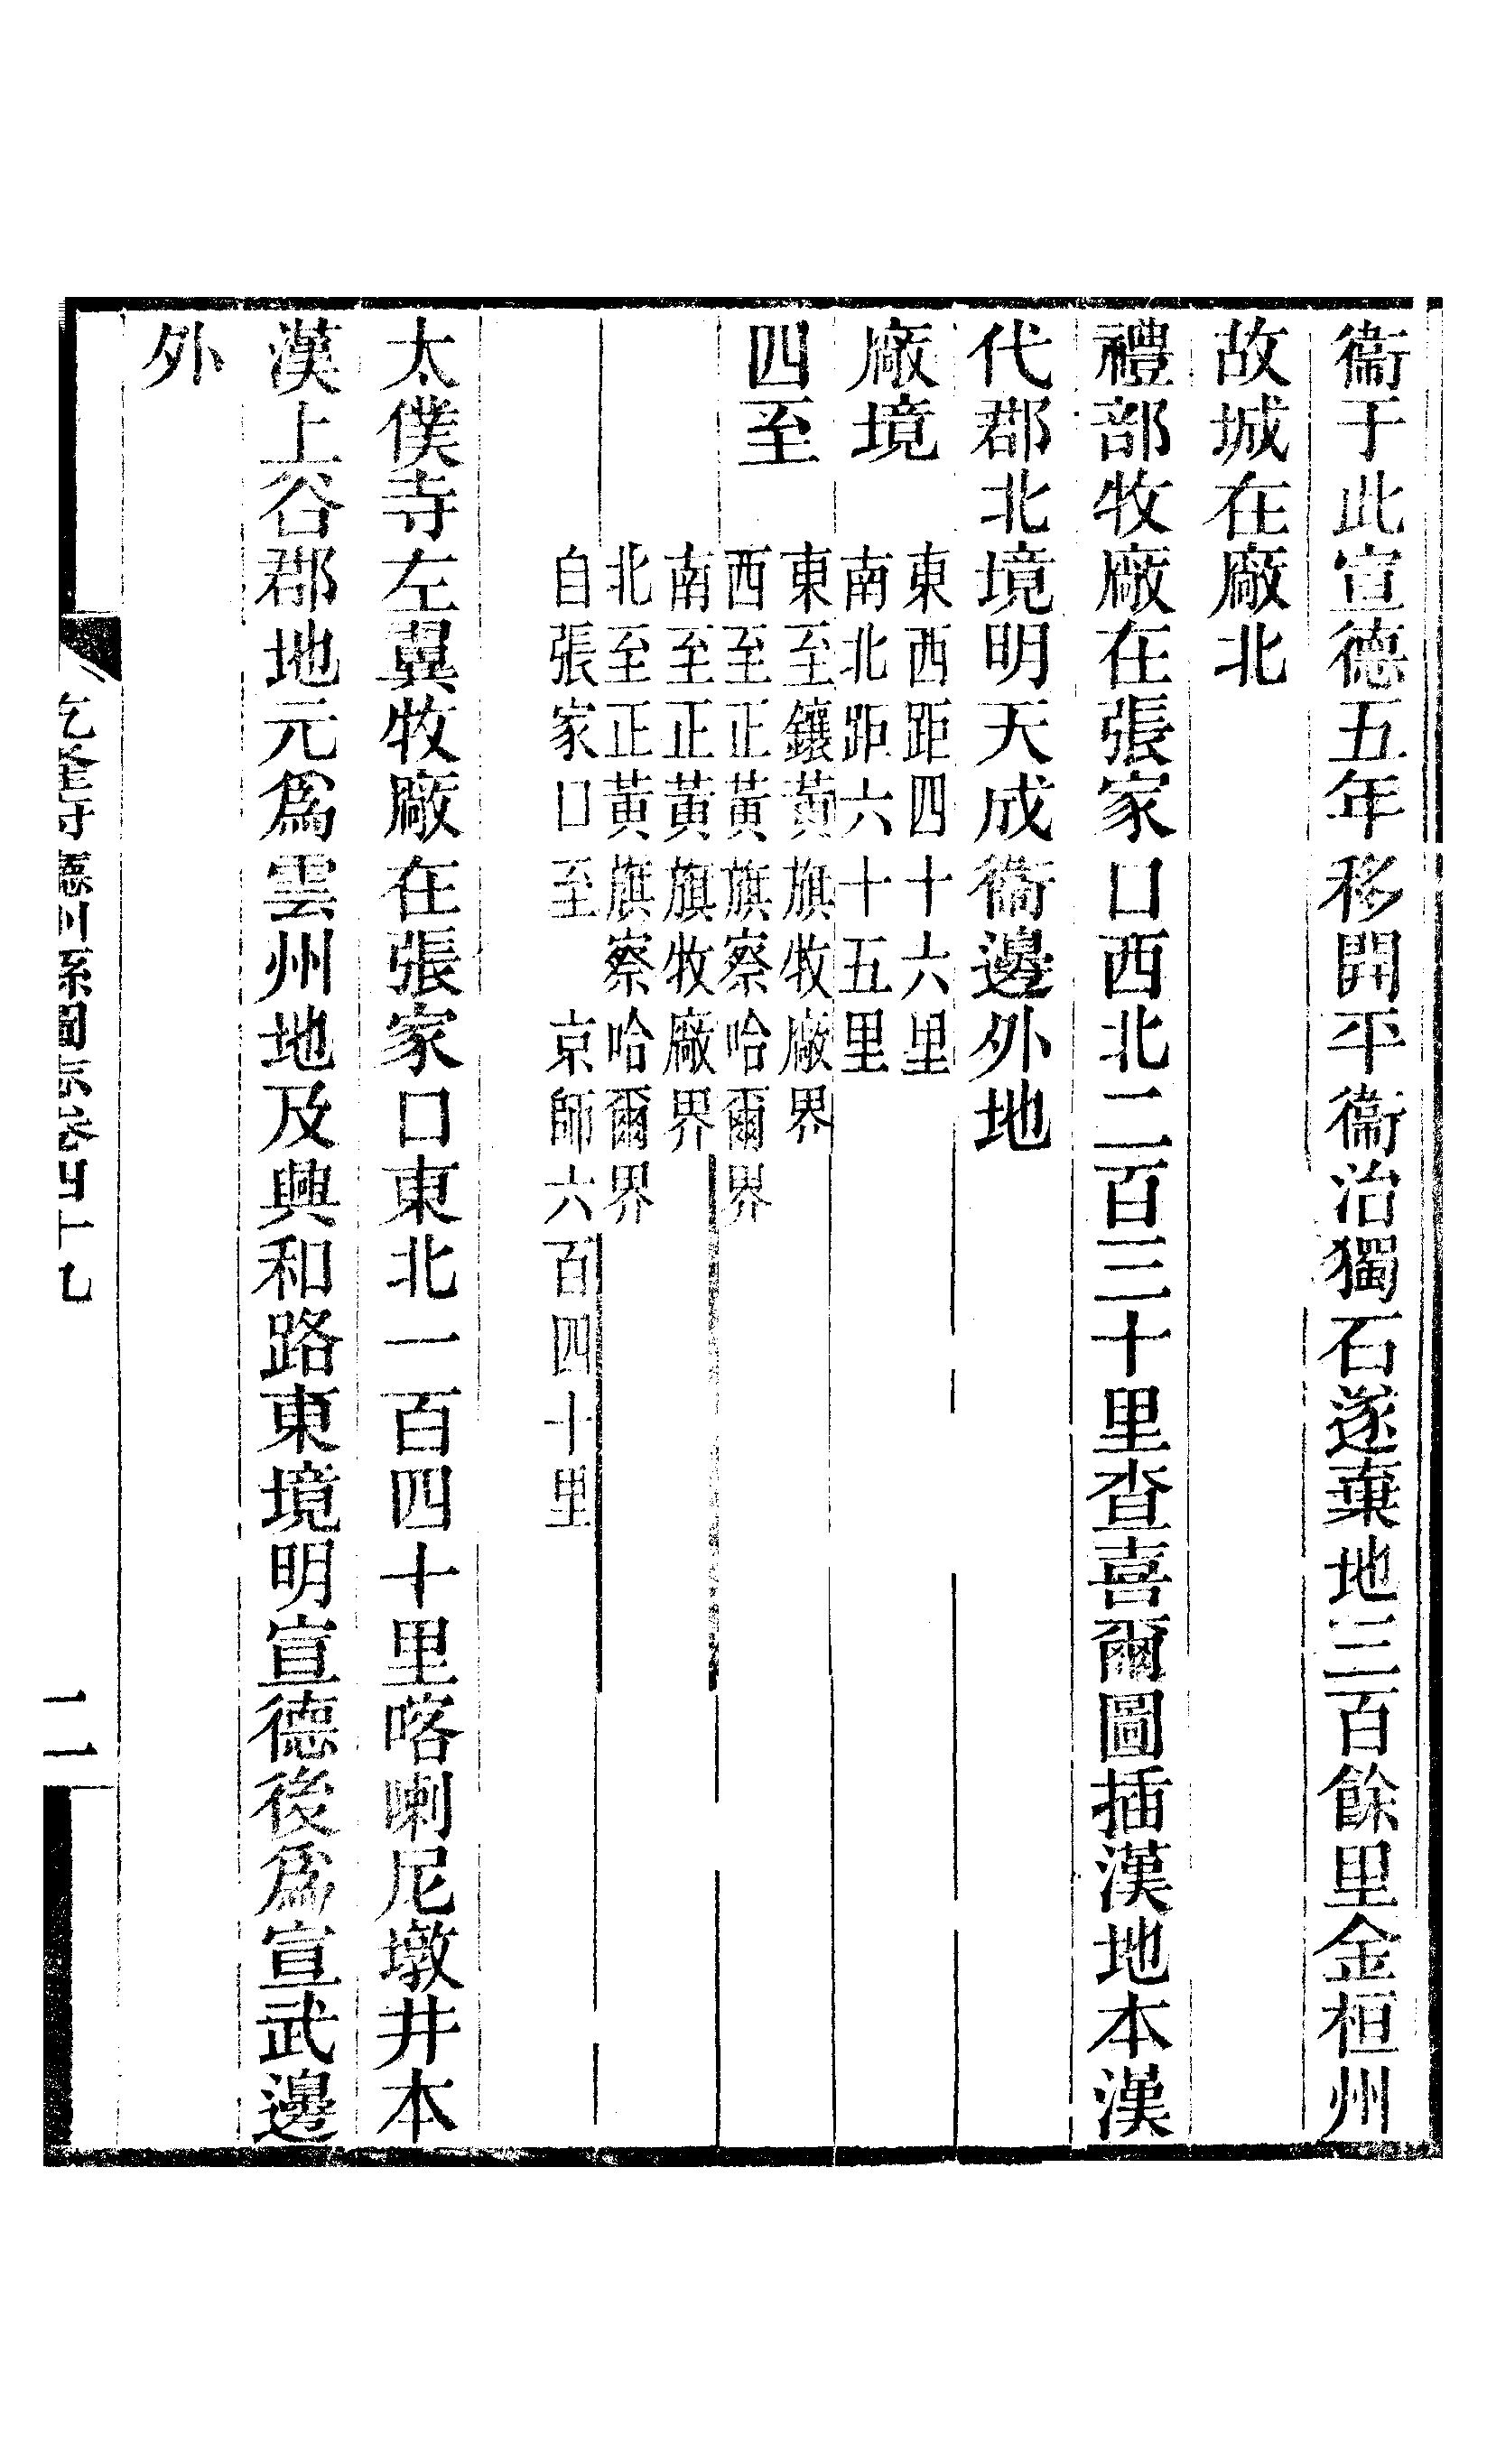 衞于此宣德五年移開平衞治獨石遂棄地三百餘里金桓州
故城在廠北
禮部牧廠在張家口西北二百三十里查喜爾圖插漢地本漢
代郡北境明天成衞邊外地
廠境
東西距四十六里
南北距六十五里
四至
東至鑲黃旗牧廠界
西至正黃旗察哈爾界
南至正黃旗牧廠界
北至正黃旗察哈爾界
自張家口至 京師六百四十里
太僕寺左翼牧廠在張家口東北一百四十里喀喇尼墩井本
漢上谷郡地元爲雲州地及興和路東境明宣德後爲宣武邊
外
二